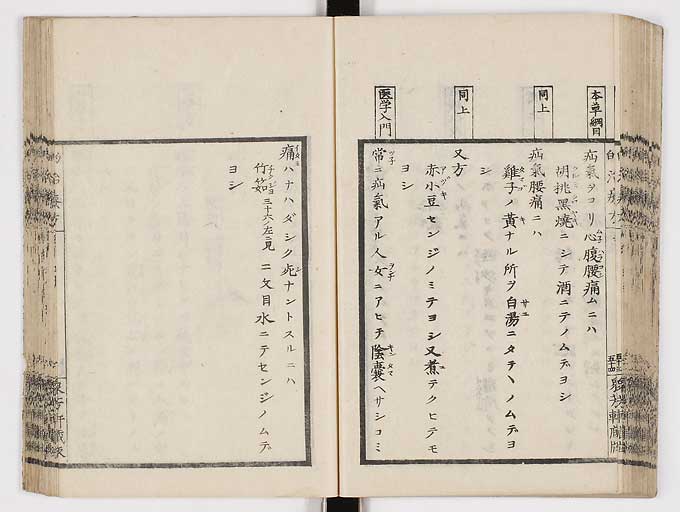 本草綱目
疝氣ヲコリ心腹腰痛ムニハ
胡桃黒焼ニシテ酒ニテノムデヨシ
同上
疝氣腰痛ニハ
雞子ノ黄ナル所ヲ白湯ニタテヽノムデヨ
シ
同上
又方
赤小豆センジノミテヨシ又煮テクヒテモ
ヨシ
医学入門
常ニ疝氣アル人女ニアヒテ陰囊ヘサシコミ
痛ハナハダシク死ナントスルニハ
竹筎三十六ノ左ニ見二文目水ニテセンジノムデ
ヨシ